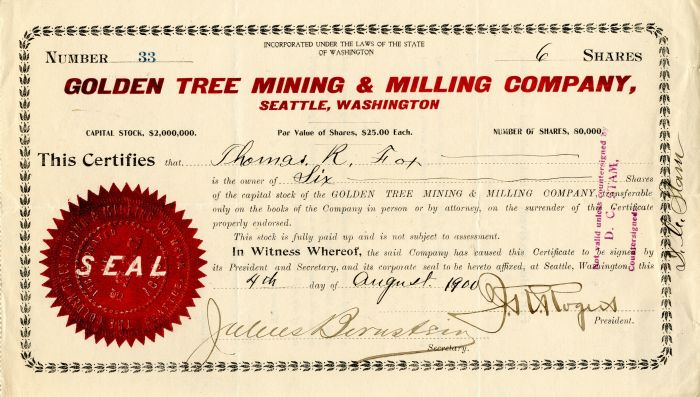 INCORPORATED UNDER THE LAWS OF THE STATE
OF WASHINGTON
NUMBER 33
6 SHARES
GOLDEN TREE MINING & MILLING COMPANY,
SEATTLE, WASHINGTON
CAPITAL STOCK, $2,000,000.
Par Value of Shares, $25.00 Each.
NUMBER OF SHARES, 80,000.
This Certifies that Thomas R. Fox
is the owner of Six Shares
of the capital stock of the GOLDEN TREE MINING & MILLING COMPANY, transferable
only on the books of the Company in person or by attorney, on the surrender of this Certificate
properly endorsed.
This stock is fully paid up and is not subject to assessment.
In Witness Whereof, the said Company has caused this Certificate to be signed by
its President and Secretary, and its corporate seal to be hereto affixed, at Seattle, Washington, this
4th day of August 1900
Rogers
President.
Julius Bernstein
Secretary.
SEAL
Not valid unless countersigned by
D. C. STAM,
Countersigned
D. C. Stam